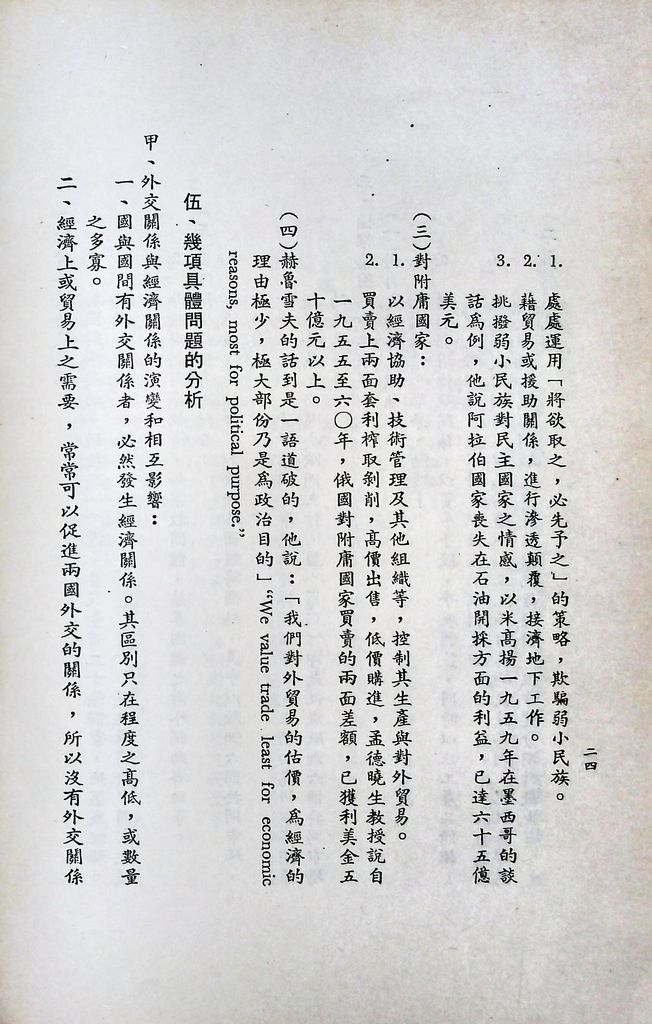 二四
1. 處處運用「將欲取之，必先予之」的策略，欺騙弱小民族。
2. 藉貿易或援助關係，進行滲透顛覆，接濟地下工作。
3. 挑撥弱小民族對民主國家之情感，以米高揚一九五九年在墨西哥的談
話為例，他說阿拉伯國家喪失在石油開採方面的利益，已達六十五億
美元。
（三）對附庸國家：
1. 以經濟協助、技術管理及其他組織等，控制其生產與對外貿易。
2. 買賣上兩面套利榨取剝削，高價出售，低價購進，孟德曉生教授說自
一九五五至六〇年，俄國對附庸國家買賣的兩面差額，已獲利美金五
十億元以上。
（四）赫魯雪夫的話到是一語道破的，他說：「我們對外貿易的估價，為經濟的
理由極少，極大部份乃是為政治目的」“We value trade least for economic
reasons, most for political purpose.”
伍、幾項具體問題的分析
甲、外交關係與經濟關係的演變和相互影響：
一、國與國間有外交關係者，必然發生經濟關係。其區別只在程度之高低，或數量
之多寡。
二、經濟上或貿易上之需要，常常可以促進兩國外交的關係，所以沒有外交關係